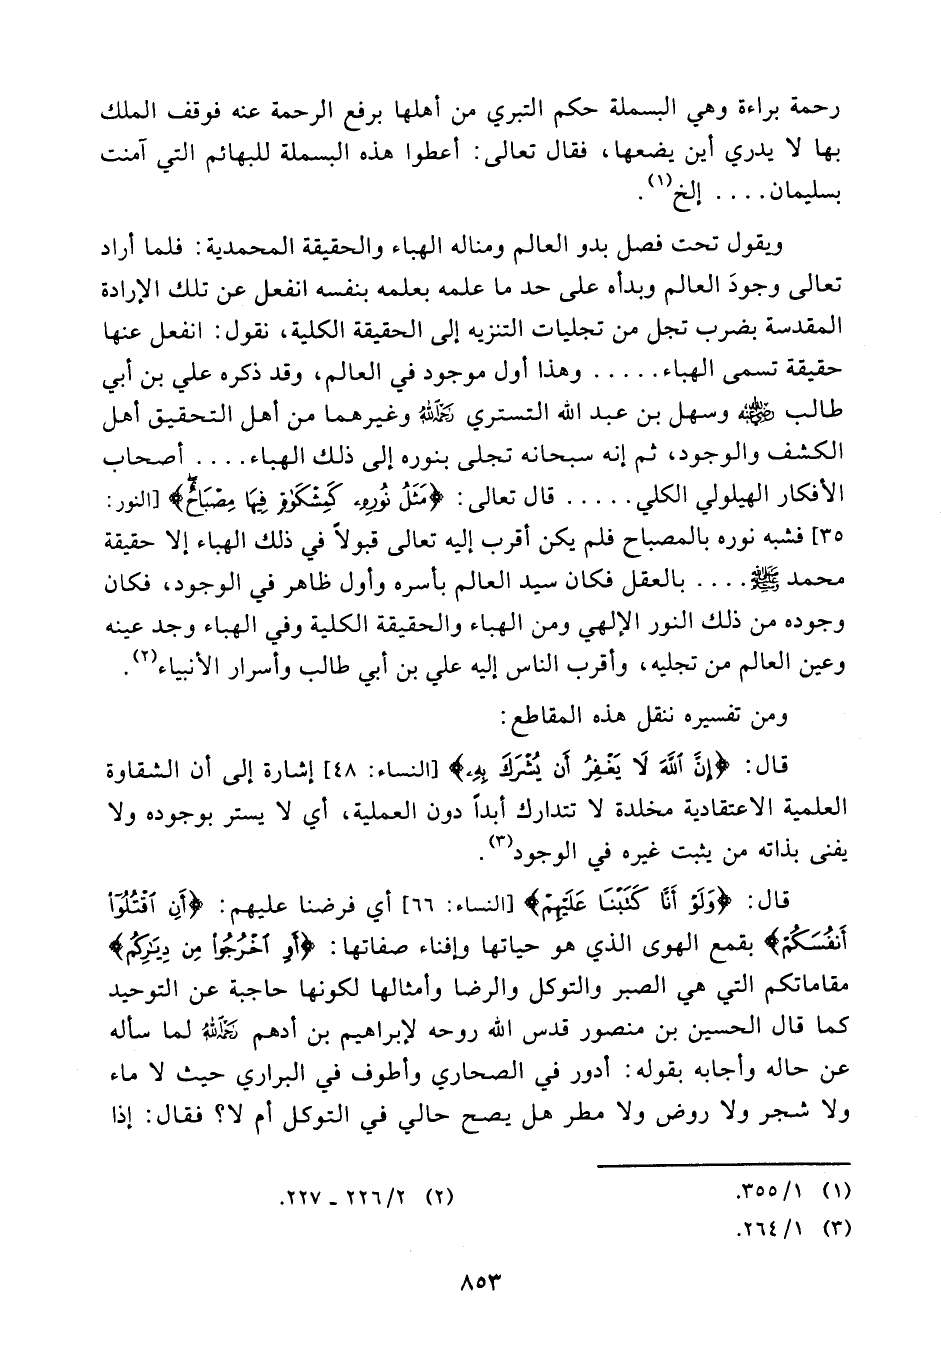 رحمة براءة وهي البسملة حكم التبري من أهلها برفع الرحمة عنه فوقف الملك
بها لا يدري أين يضعها، فقال تعالى: أعطوا هذه البسملة للبهائم التي آمنت
بسليمان.... إلخ(١).
ويقول تحت فصل بدو العالم ومثاله الهباء والحقيقة المحمدية: فلما أراد
تعالى وجودَ العالم وبدأه على حد ما علمه بعلمه بنفسه انفعل عن تلك الإرادة
المقدسة بضرب تجل من تجليات التنزيه إلى الحقيقة الكلية، نقول: انفعل عنها
حقيقة تسمى الهباء..... وهذا أول موجود في العالم، وقد ذكره علي بن أبي
طالب رضي الله عنه وسهل بن عبد الله التستري رحمه الله وغيرهما من أهل التحقيق أهل
الكشف والوجود، ثم إنه سبحانه تجلى بنوره إلى ذلك الهباء.... أصحاب
الأفكار الهيلولي الكلي..... قال تعالى: ﴿مَثَلُ نُورِهِۦ كَمِشْكَوٰةٍ فِيهَا مِصْبَاحٌ﴾ [النور:
٣٥] فشبه نوره بالمصباح فلم يكن أقرب إليه تعالى قبولاً في ذلك الهباء إلا حقيقة
محمد ﷺ.... بالعقل فكان سيد العالم بأسره وأول ظاهر في الوجود، فكان
وجوده من ذلك النور الإلهي ومن الهباء والحقيقة الكلية وفي الهباء وجد عينه
وعين العالم من تجليه، وأقرب الناس إليه علي بن أبي طالب وأسرار الأنبياء(٢).
ومن تفسيره ننقل هذه المقاطع:
قال: ﴿إِنَّ ٱللَّهَ لَا يَغْفِرُ أَن يُشْرَكَ بِهِۦ﴾ [النساء: ٤٨] إشارة إلى أن الشقاوة
العلمية الاعتقادية مخلدة لا تتدارك أبداً دون العملية، أي لا يستر بوجوده ولا
يفنى بذاته من يثبت غيره في الوجود(٣).
قال: ﴿وَلَوْ أَنَّا كَتَبْنَا عَلَيْهِمْ﴾ [النساء: ٦٦] أي فرضنا عليهم: ﴿أَنِ ٱقْتُلُوٓا۟
أَنفُسَكُمْ﴾ بقمع الهوى الذي هو حياتها وإفناء صفاتها: ﴿أَوِ ٱخْرُجُوا۟ مِن دِيَٰرِكُم﴾
مقاماتكم التي هي الصبر والتوكل والرضا وأمثالها لكونها حاجبة عن التوحيد
كما قال الحسين بن منصور قدس الله روحه لإبراهيم بن أدهم رحمه الله لما سأله
عن حاله وأجابه بقوله: أدور في الصحاري وأطوف في البراري حيث لا ماء
ولا شجر ولا روض ولا مطر هل يصح حالي في التوكل أم لا؟ فقال: إذا
(١) ١/ ٣٥٥.
(٢) ٢/ ٢٢٦ ـ ٢٢٧.
(٣) ١/ ٢٦٤.
٨٥٣